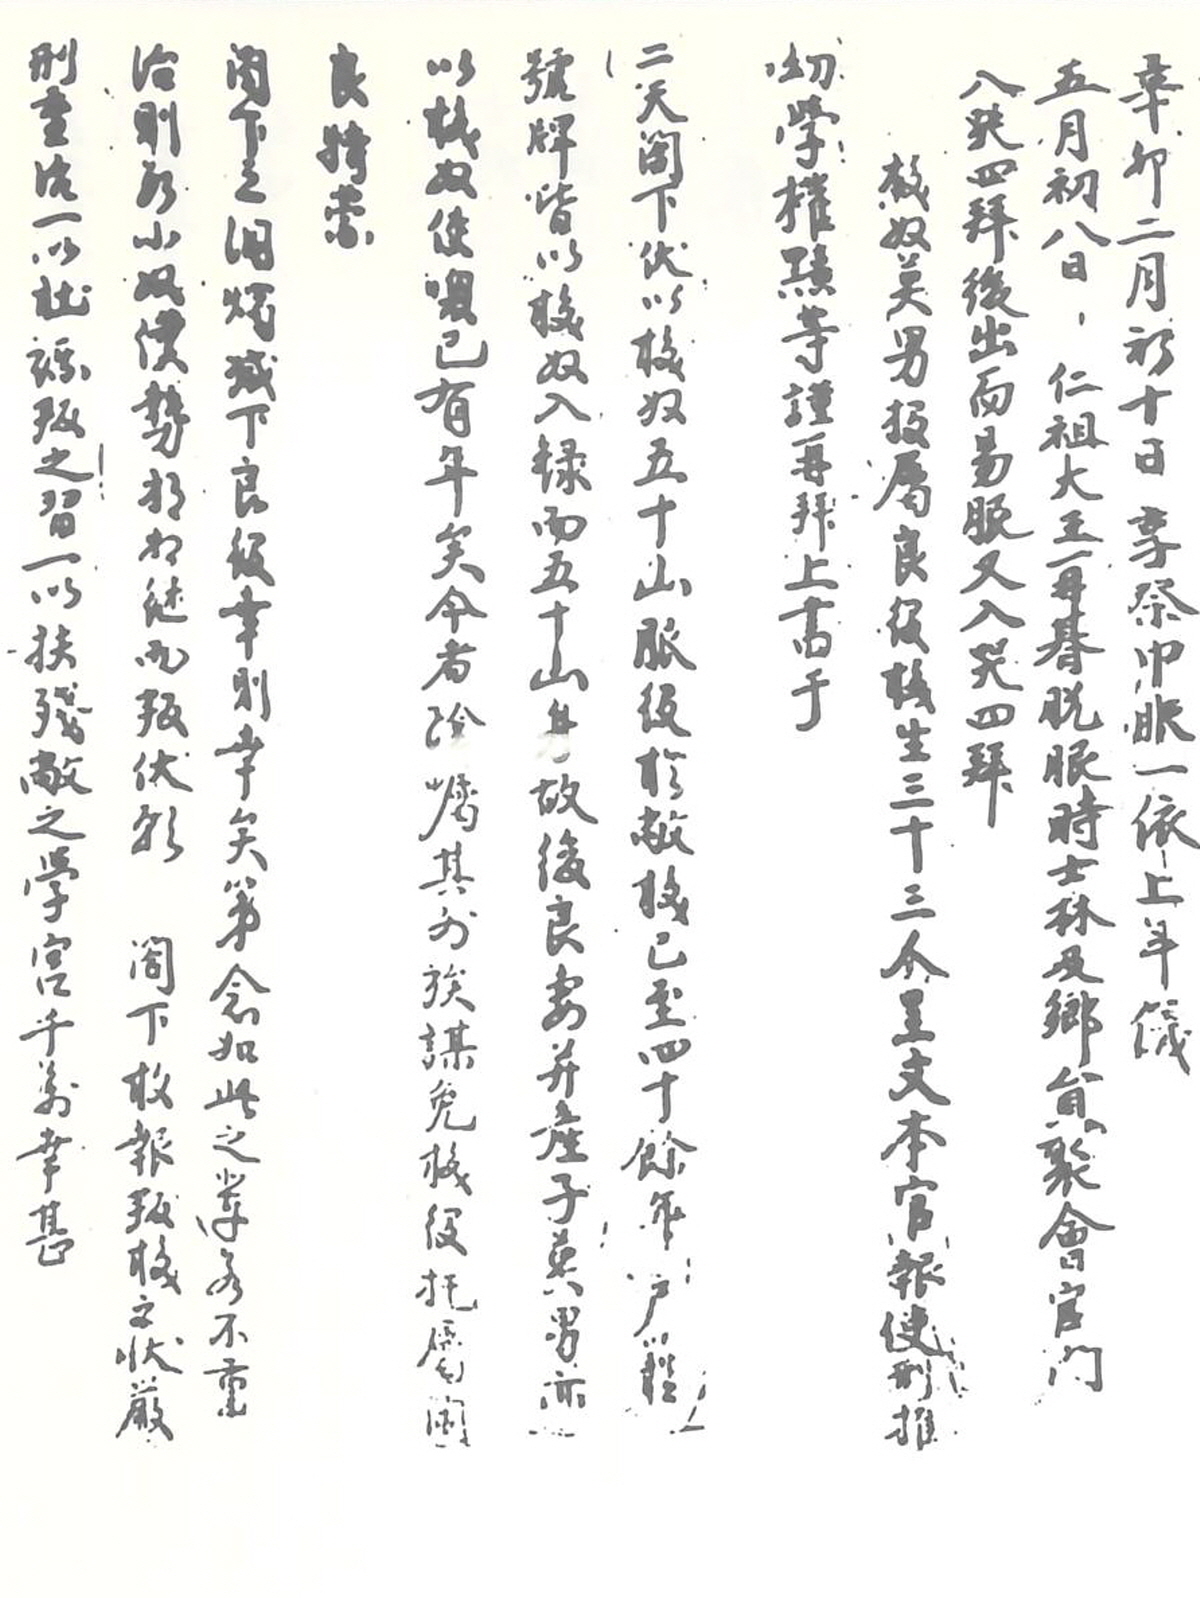 辛卯二月初十日 享祭巾服一依上年儀
五月初八日 仁祖大王再朞脫服時士林及鄕員聚會官門
入哭四拜後出而易服又入哭四拜
校奴英男投屬良役校生三十三人呈文本官報使刑推
幼學權等謹再拜上書于
二天閤下伏以校奴五十山服役於敝校已至四十餘年戶籍
號牌皆以校奴入錄而五十山身故後良妻并産子英男亦
以校奴使喚已有年矣今者附囑其外族謀免校役托屬
良
閤下之減下良役幸則幸矣第念如此之輩若不重
治則殘小奴僕勢將相繼而叛伏願 閤下枚報叛校之狀嚴
刑重治一以杜謀叛之習一以扶殘敝之學宮千萬幸甚